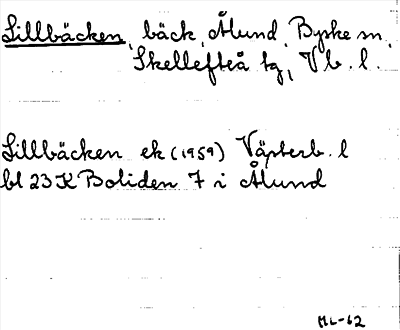 Lillbäcken, bäck, Ålund, Byske sn,
Skellefteå tg, Vb. l.
Lillbäcken ek (1959) Västerb. l
bl 23 K Boliden 7 i Ålund
ML-62